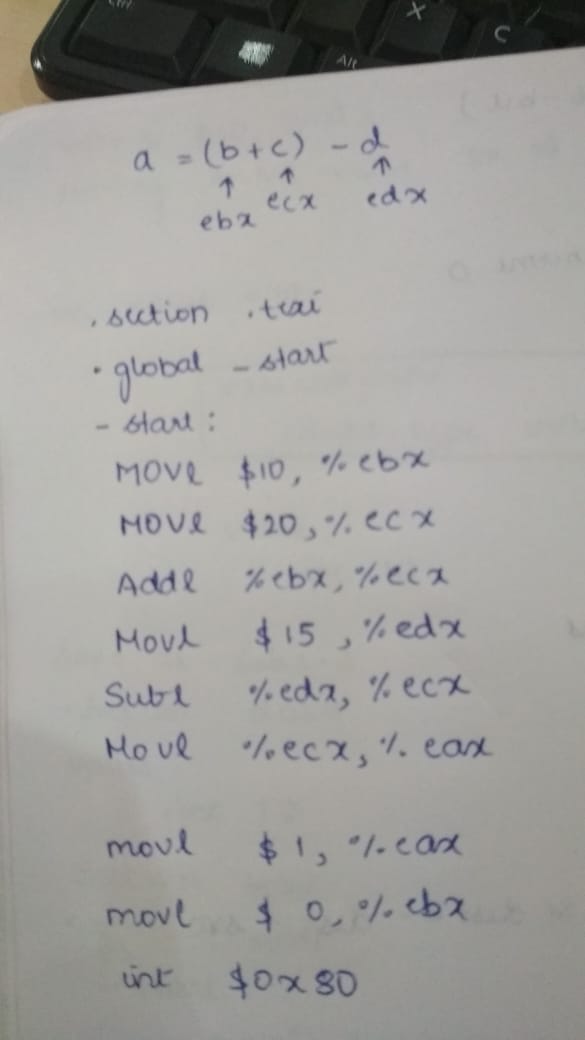 a = (b + c) - d
↑ ↑ ↑
ebx ecx edx
.section .text
.global _start
_start:
MOVl $10, %ebx
MOVl $20, %ecx
Addl %ebx, %ecx
Movl $15, %edx
Subl %edx, %ecx
Movl %ecx, %eax
movl $1, %eax
movl $0, %ebx
int $0x80